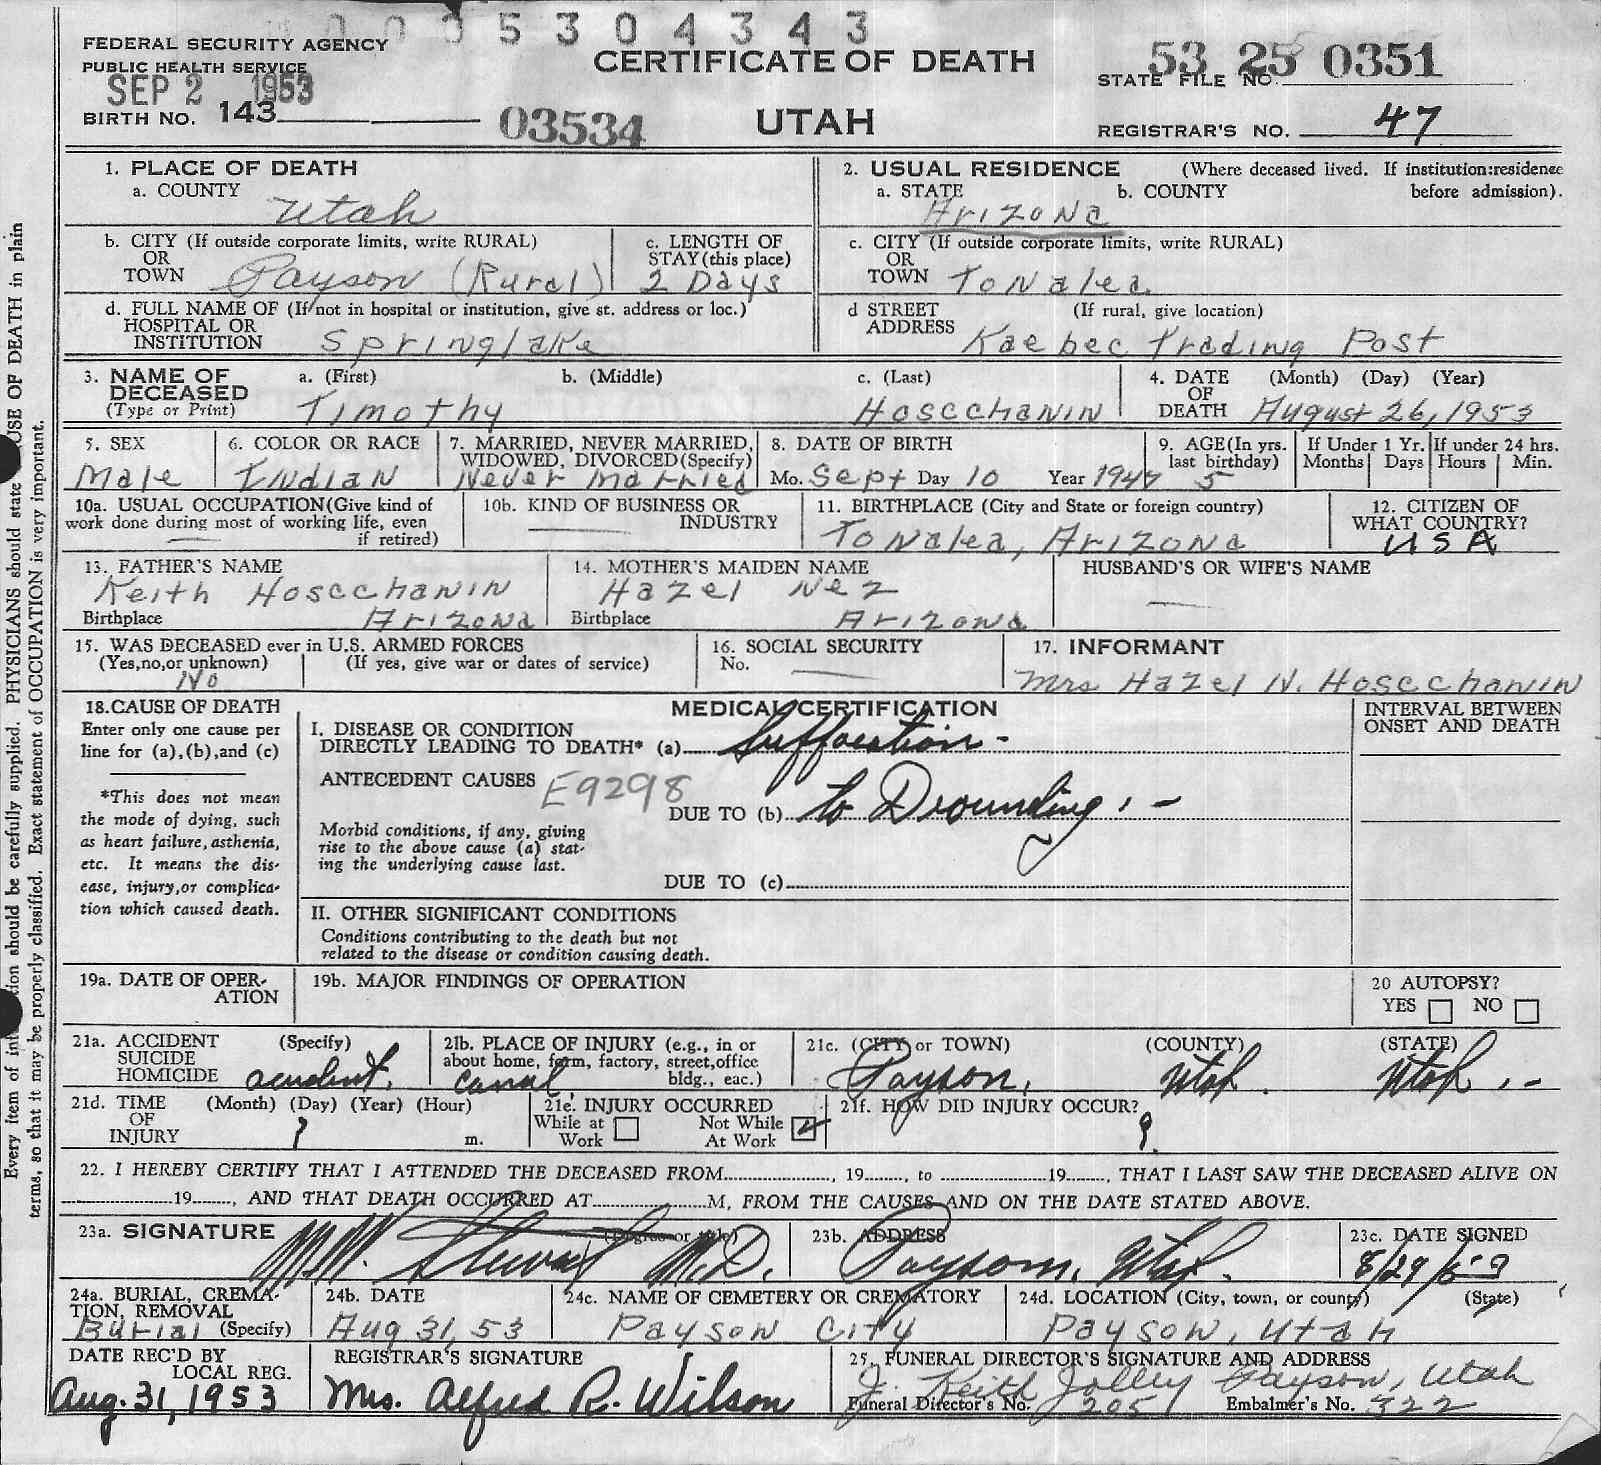 0035304343
FEDERAL SECURITY AGENCY
PUBLIC HEALTH SERVICE
CERTIFICATE OF DEATH
53 25 0351
STATE FILE NO.
SEP 2 1953
BIRTH NO. 143
03534
UTAH
REGISTRAR'S NO. 47
1. PLACE OF DEATH
a. COUNTY
Utah
2. USUAL RESIDENCE (Where deceased lived. If institution:residence before admission).
a. STATE b. COUNTY
Arizona
b. CITY (If outside corporate limits, write RURAL)
OR
TOWN Payson (Rural)
c. LENGTH OF
STAY (this place)
2 Days
c. CITY (If outside corporate limits, write RURAL)
OR
TOWN Tonalea
d. FULL NAME OF (If not in hospital or institution, give st. address or loc.)
HOSPITAL OR
INSTITUTION Springlake
d STREET (If rural, give location)
ADDRESS Kaebec Trading Post
3. NAME OF DECEASED
(Type or Print)
a. (First) b. (Middle) c. (Last)
Timothy Hoscchanin
4. DATE OF DEATH (Month) (Day) (Year)
August 26, 1953
5. SEX
Male
6. COLOR OR RACE
Indian
7. MARRIED, NEVER MARRIED,
WIDOWED, DIVORCED (Specify)
Never Married
8. DATE OF BIRTH
Mo. Sept Day 10 Year 1947
9. AGE (In yrs. last birthday)
5
If Under 1 Yr.
Months Days
If under 24 hrs.
Hours Min.
10a. USUAL OCCUPATION (Give kind of
work done during most of working life, even
if retired)
10b. KIND OF BUSINESS OR
INDUSTRY
11. BIRTHPLACE (City and State or foreign country)
Tonalea, Arizona
12. CITIZEN OF
WHAT COUNTRY?
USA
13. FATHER'S NAME
Keith Hoscchanin
Birthplace Arizona
14. MOTHER'S MAIDEN NAME
Hazel Nez
Birthplace Arizona
HUSBAND'S OR WIFE'S NAME
15. WAS DECEASED ever in U.S. ARMED FORCES
(Yes,no,or unknown) (If yes, give war or dates of service)
No
16. SOCIAL SECURITY
No.
17. INFORMANT
Mrs Hazel N. Hoscchanin
18. CAUSE OF DEATH
Enter only one cause per
line for (a),(b),and (c)
*This does not mean
the mode of dying, such
as heart failure, asthenia,
etc. It means the dis-
ease, injury, or complica-
tion which caused death.
MEDICAL CERTIFICATION
INTERVAL BETWEEN
ONSET AND DEATH
I. DISEASE OR CONDITION
DIRECTLY LEADING TO DEATH* (a) Suffocation -
ANTECEDENT CAUSES E9298
DUE TO (b) to Drounding. -
Morbid conditions, if any, giving
rise to the above cause (a) stat-
ing the underlying cause last.
DUE TO (c)
II. OTHER SIGNIFICANT CONDITIONS
Conditions contributing to the death but not
related to the disease or condition causing death.
19a. DATE OF OPER-
ATION
19b. MAJOR FINDINGS OF OPERATION
20 AUTOPSY?
YES NO
21a. ACCIDENT (Specify)
SUICIDE
HOMICIDE accident.
21b. PLACE OF INJURY (e.g., in or
about home, farm, factory, street, office
bldg., eac.)
canal
21c. (CITY or TOWN) (COUNTY) (STATE)
Payson, Utah. Utah. -
21d. TIME (Month) (Day) (Year) (Hour)
OF
INJURY ? m.
21e. INJURY OCCURRED
While at Work Not While At Work
21f. HOW DID INJURY OCCUR?
?
22. I HEREBY CERTIFY THAT I ATTENDED THE DECEASED FROM 19, to 19, THAT I LAST SAW THE DECEASED ALIVE ON
19, AND THAT DEATH OCCURRED AT M, FROM THE CAUSES AND ON THE DATE STATED ABOVE.
23a. SIGNATURE (Degree or title)
Stewart M.D.
23b. ADDRESS
Payson, Utah.
23c. DATE SIGNED
8/29/53
24a. BURIAL, CREMA-
TION, REMOVAL
(Specify)
Burial
24b. DATE
Aug 31, 53
24c. NAME OF CEMETERY OR CREMATORY
Payson City
24d. LOCATION (City, town, or county) (State)
Payson, Utah
DATE REC'D BY
LOCAL REG.
Aug. 31, 1953
REGISTRAR'S SIGNATURE
Mrs. Alfred R. Wilson
25. FUNERAL DIRECTOR'S SIGNATURE AND ADDRESS
J. Keith Jolley Payson, Utah
Funeral Director's No. 205 Embalmer's No. 322
terms, so that it may be properly classified. Exact statement of OCCUPATION is very important.